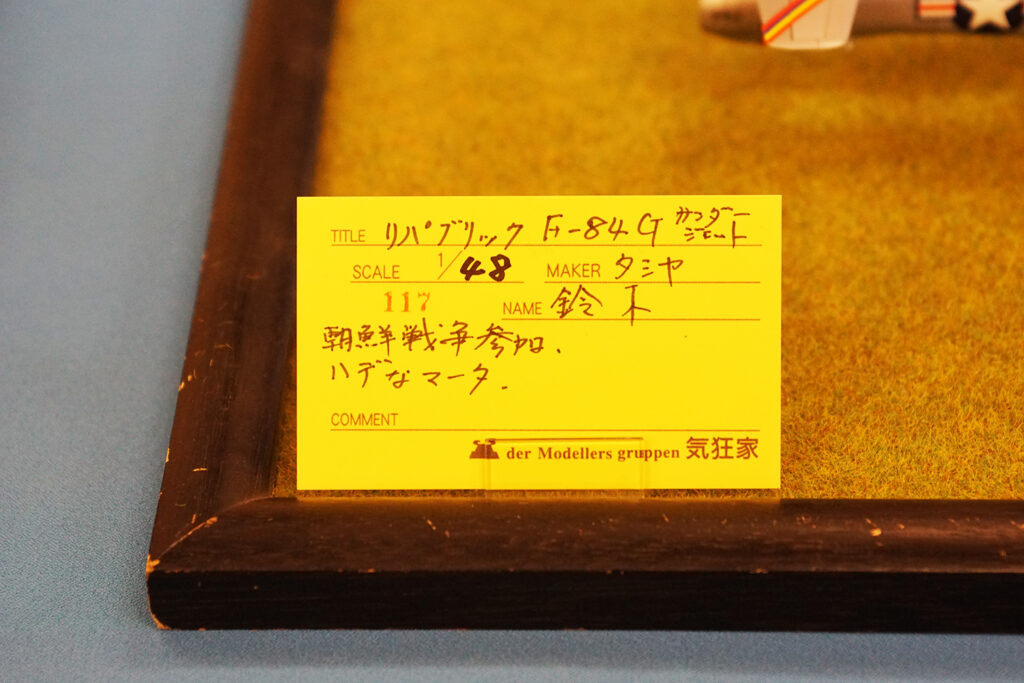 TITLE リパブリック F-84G サンダージェット
SCALE 1/48 MAKER タミヤ
117 NAME 鈴木
朝鮮戦争参加.
ハデなマーク.
COMMENT
der Modellers gruppen 気狂家